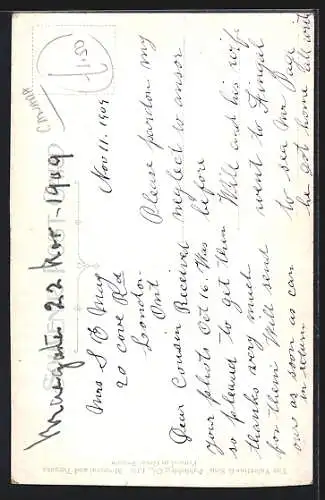 Nov 11. 1909
Please pardon my
neglect to ansor
before
Dear Cousin Received
your photo Oct 16. Was
so pleased to get them
thanks very much
for them Will send
ours as soon as can
in return
Will and his wife
went to Fingal
to see Mr Page
he got home all writ
Mrs S E May
20 cove Rd
London
Ont
22 Nov - 1909
1.50
The Valentine & Sons Publishing Co., Ltd. Montreal and Toronto
Printed in Great Britain